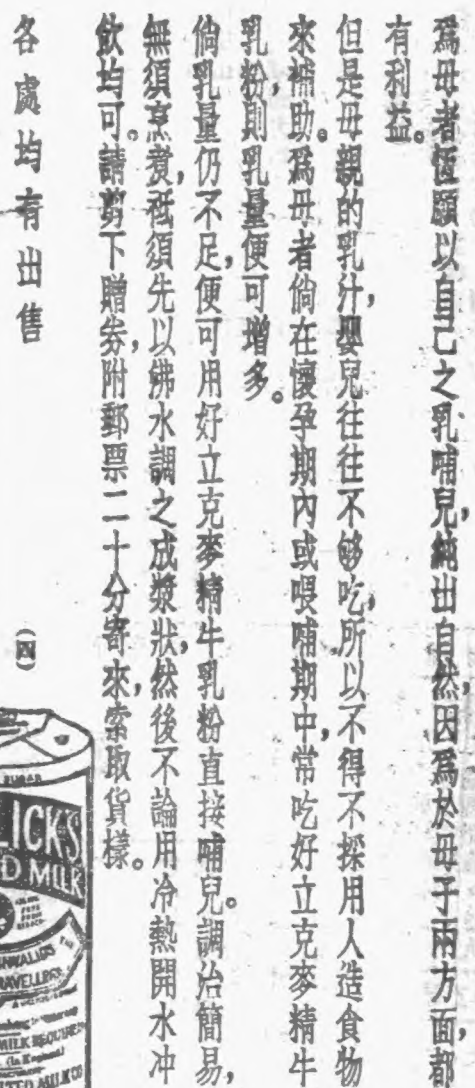 爲母者恆願以自己之乳哺兒，純出自然，因爲於母子兩方面，都
有利益。
但是母親的乳汁，嬰兒往往不够吃，所以不得不採用人造食物
來補助。爲母者倘在懷孕期內或喂哺期中，常吃好立克麥精牛
乳粉，則乳量便可增多。
倘乳量仍不足，便可用好立克麥精牛乳粉直接哺兒。調治簡易，
無須烹煮，祗須先以沸水調之成漿狀，然後不論用冷熱開水冲
飲均可。請剪下贈券，附郵票二十分寄來，索取貨樣。
各處均有出售
(四)
LICK'S
D MILK
AVELLERS
MILK REQUIRED
TED MILK CO